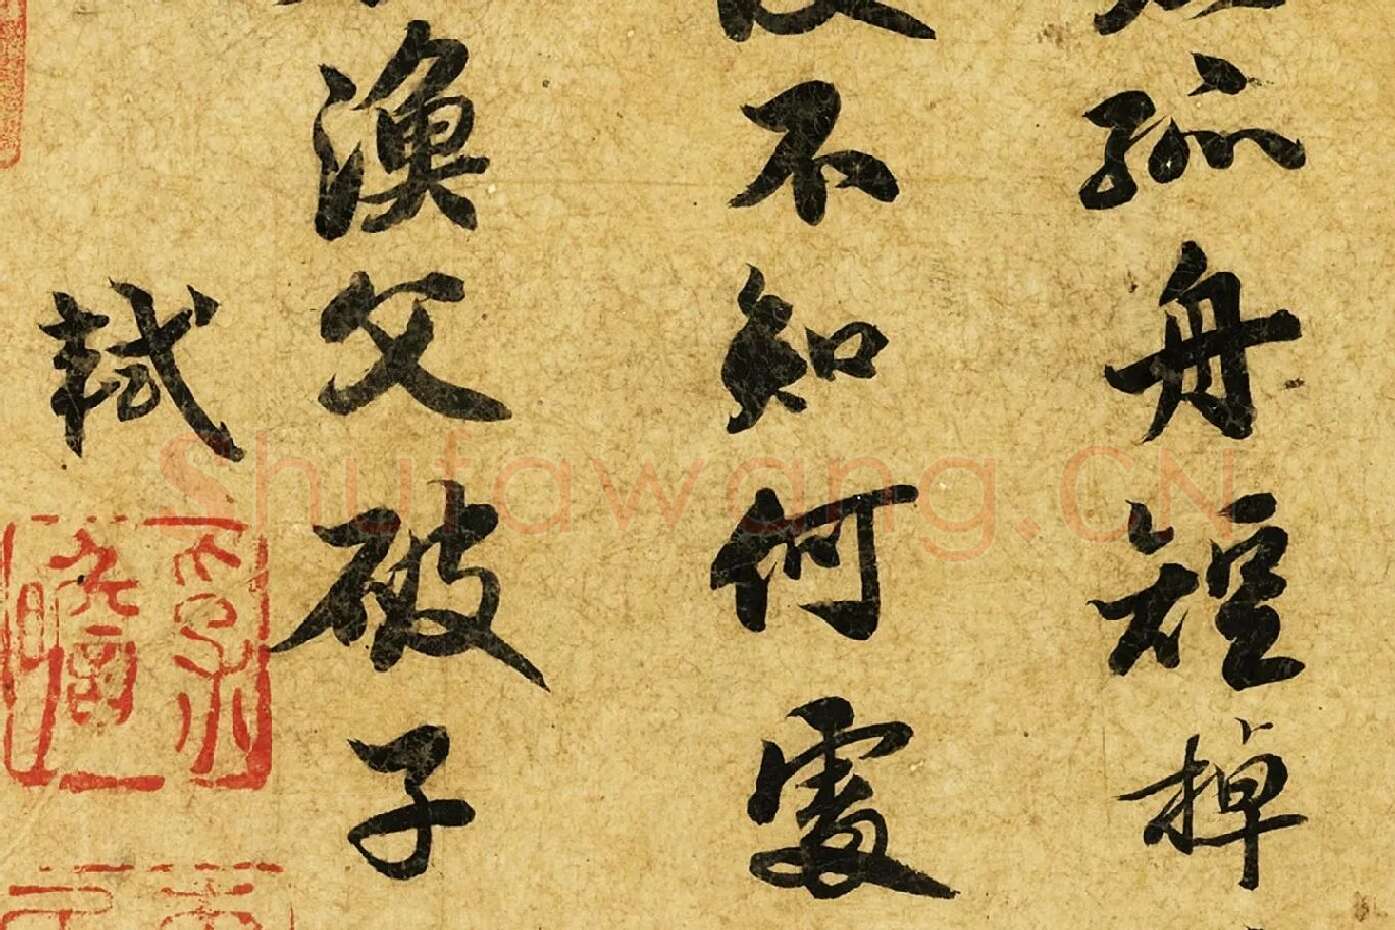 孤舟短棹
不知何處
漁父破子
軾
Shufawang.CN